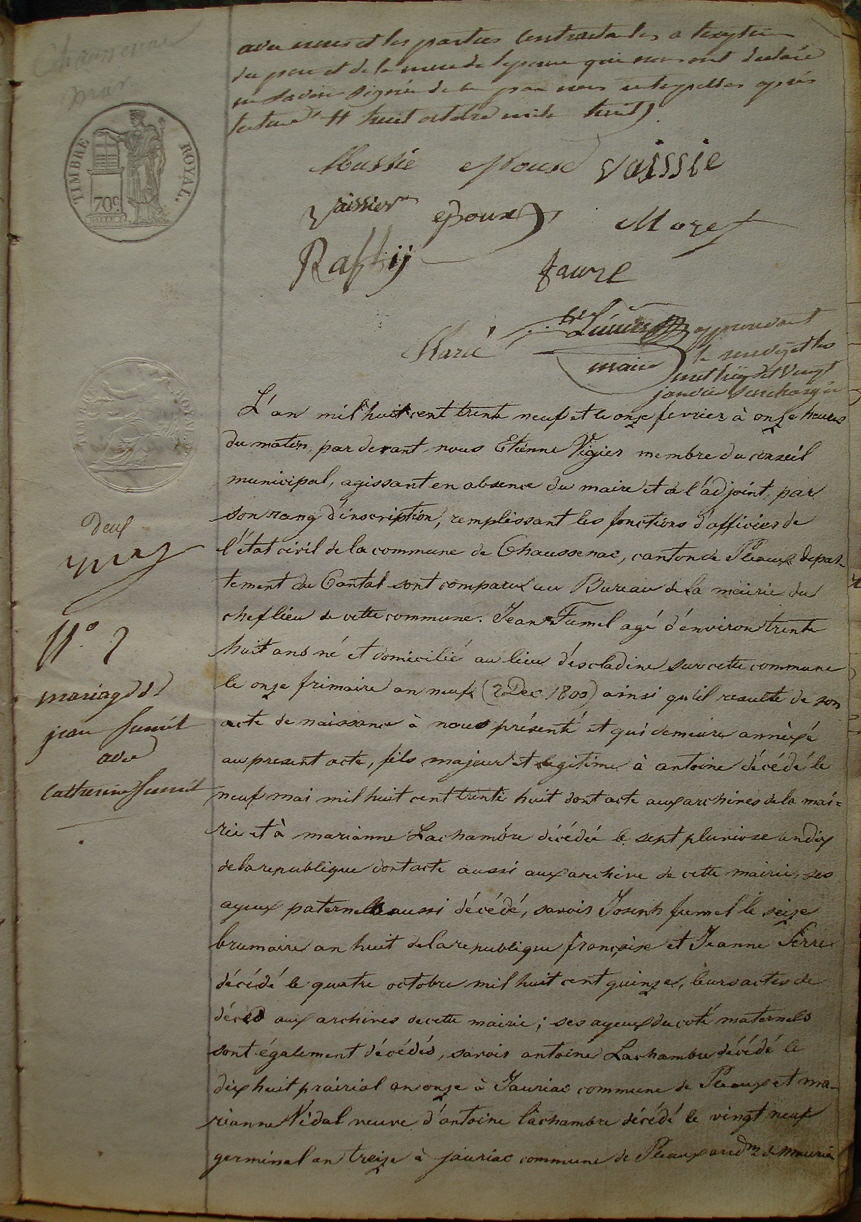 avec nous et les parties contractantes a l'exeption
du pere et de la mere de l'epouse qui nous ont declaré
ne savoir signer de ce par nous interpellés après
lecture huit
Massie epouse vaissie
Vaissier epoux More
Raffij faure
Marié maire approuvant
le renvoy et les
mot vingt
janvier surchargés
TIMBRE ROYAL.
70c.
L'an mil huit cent trente neuf et le onze fevrier à onze heures
du matin, par devant nous Etienne Vigier membre du conseil
municipal, agissant en absence du maire et de l'adjoint, par
son rang d'inscription, remplissant les fonctions d'officier de
l'état civil de la commune de Chaussenac, canton de Pleaux depar-
tement du Cantal sont comparu au Bureau de la mairie du
chef lieu de cette commune. Jean Fumel agé d'environ trente
huit ans né et domicilié au lieu d'escladine sur cette commune
le onze frimaire an neuf (2 Dec. 1800) ainsi qu'il resulte de son
acte de naissance à nous présenté et qui demeure annéxé
au present acte, fils majeur et legitime à antoine décédé le
neuf mai mil huit cent trente huit dont acte aux archives de la mai-
rie et à marianne Lachambre décédée le sept pluviose an dix
de la republique dont acte aussi aux archive de cette mairie, ses
ayeux paternels aussi décédé, savoir Joseph fumel le seize
brumaire an huit de la republique françoise et Jeanne Serre
décédé le quatre octobre mil huit cent quinze, leurs actes de
décéd aux archives de cette mairie; ses ayeux du coté maternels
sont également décédés, savoir antoine Lachambre décédé le
dix huit prairial an onze à Jauriac commune de Pleaux et ma-
rianne Vidal veuve d'antoine lachambre décédé le vingt neuf
germinal an treize à jauriac commune de Pleaux
Deux
N° 2
mariage de
jean fumel
avec
catherine fumel